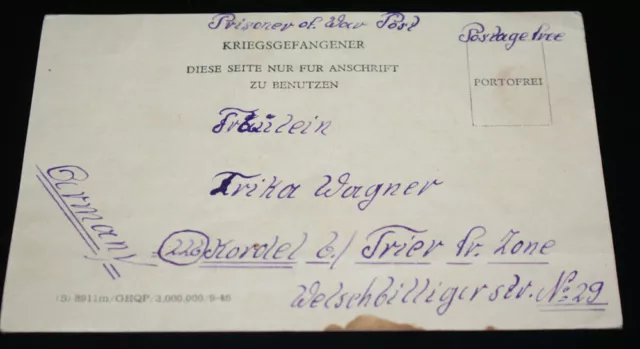 Prisoner of War Post
Postage free
KRIEGSGEFANGENER
DIESE SEITE NUR FUR ANSCHRIFT
ZU BENUTZEN
PORTOFREI
Fräulein
Erika Wagner
Germany
(22b) Kordel b./ Trier Fr. Zone
Welschbilligerstr. No 29
(S) 8911m/GHQP/3,000,000/9-46